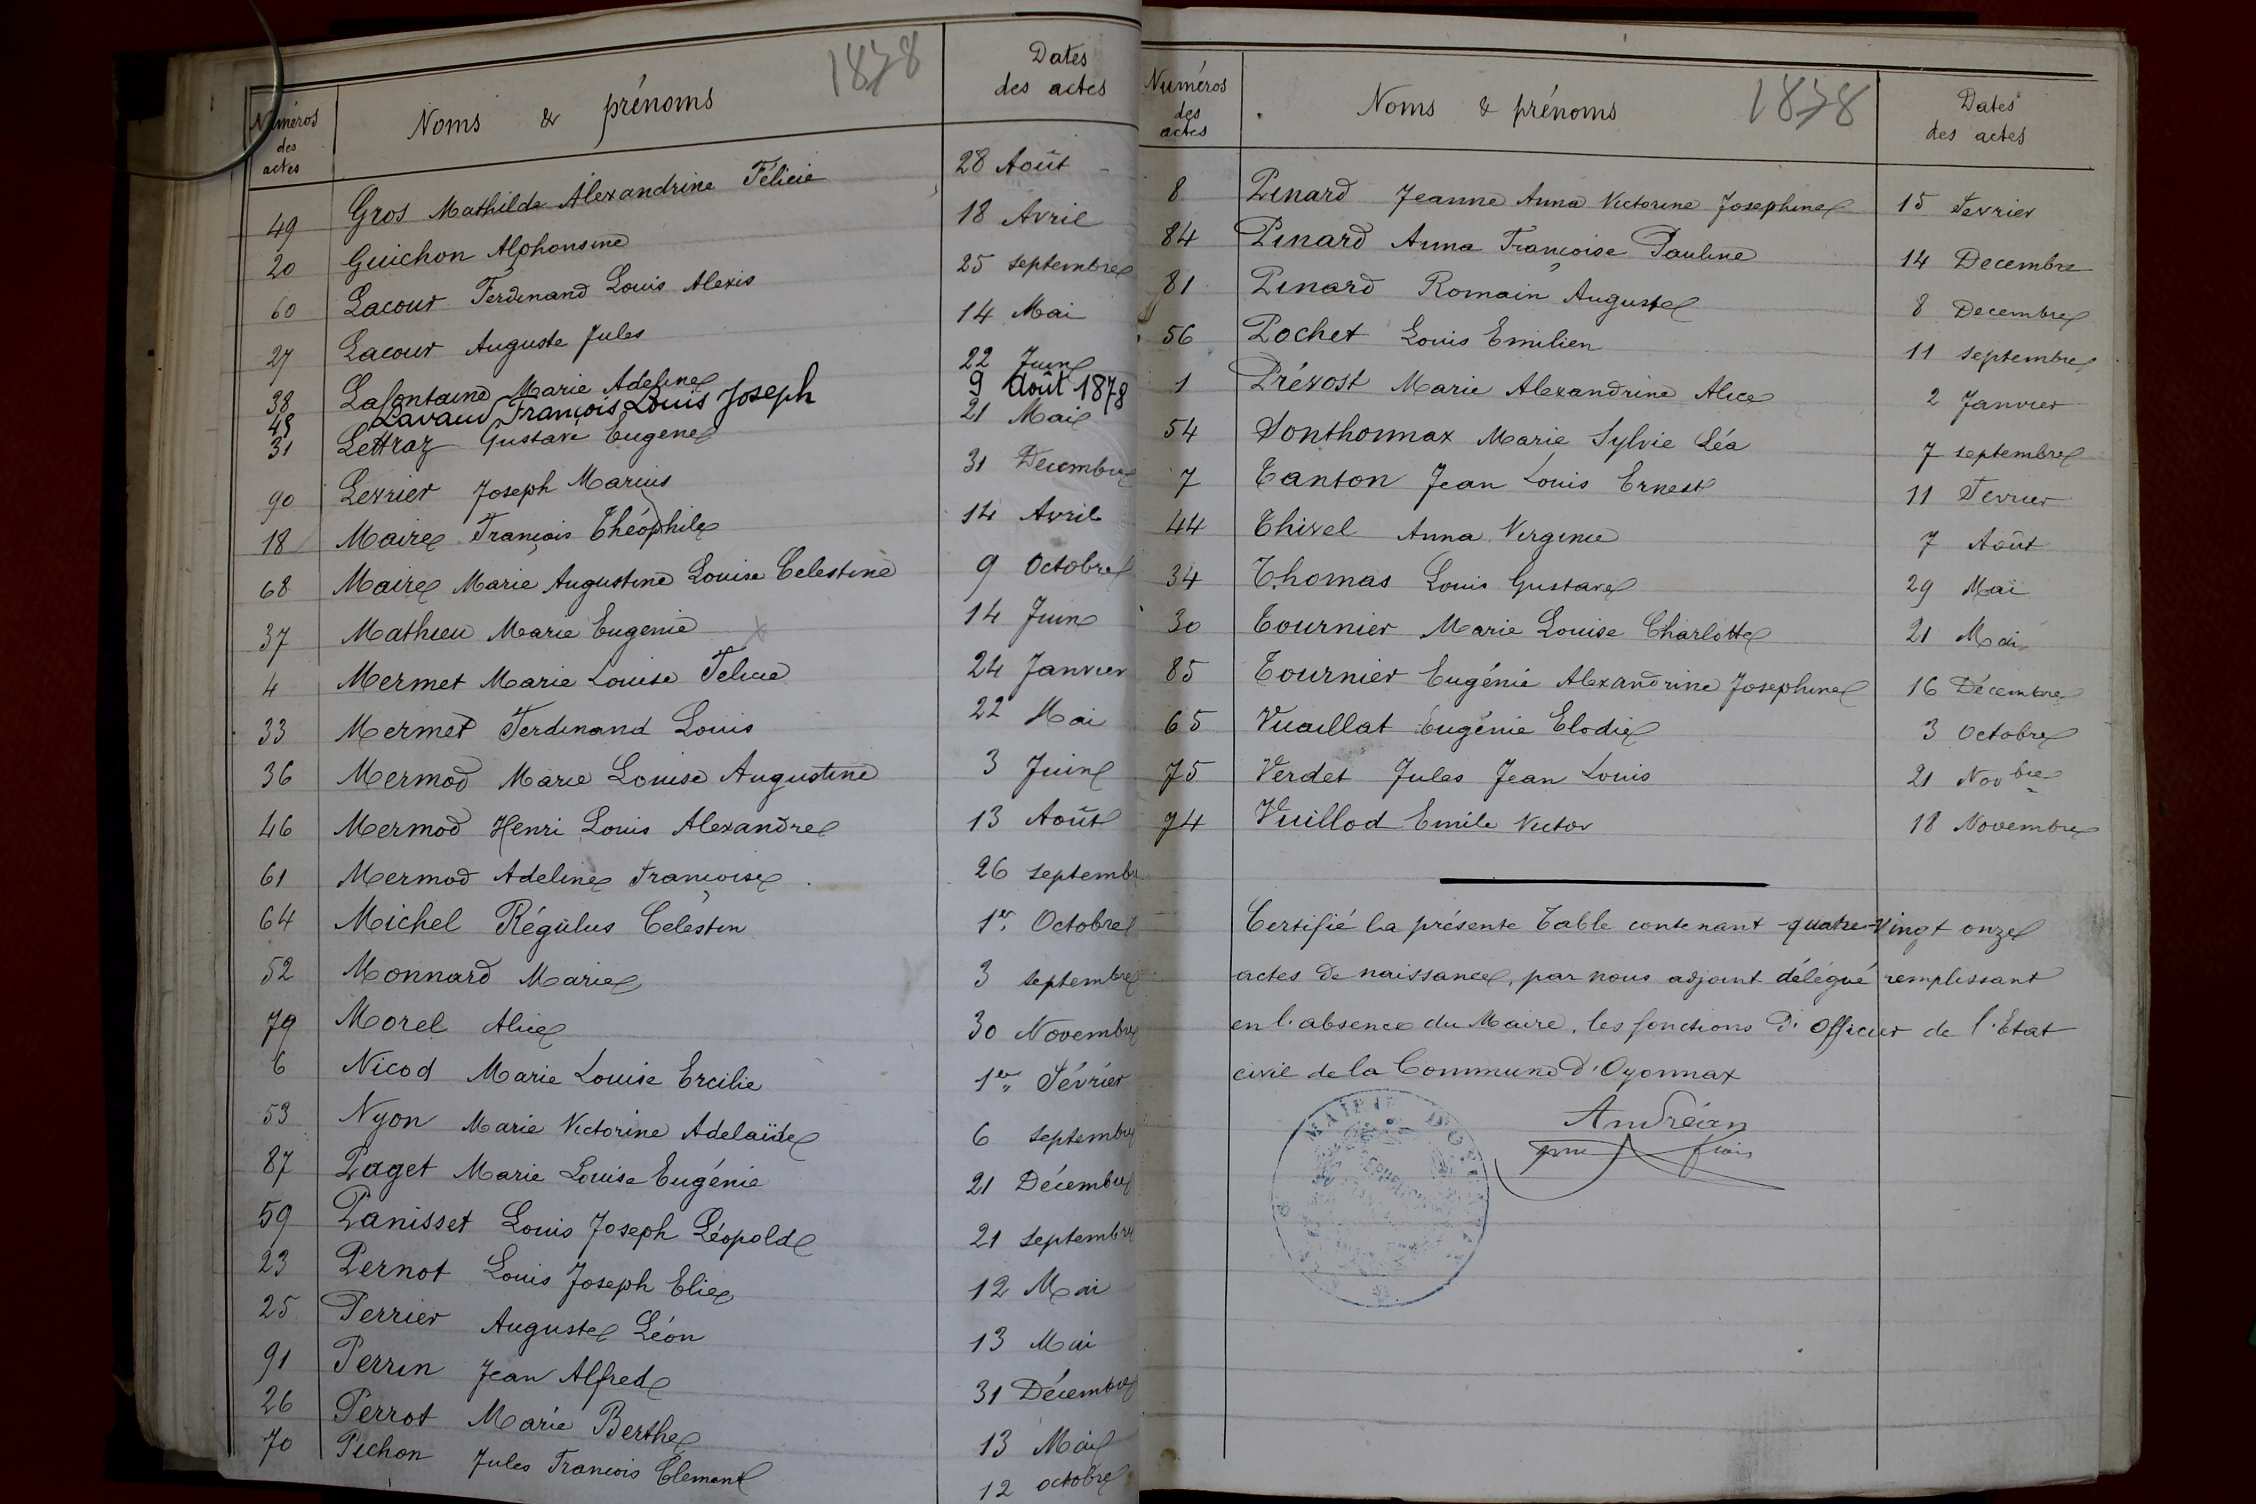 Numéros des actes Noms & prénoms 1878 Dates des actes
49 Gros Mathilde Alexandrine Félicie 28 Août
20 Guichon Alphonsine 18 Avril
60 Lacour Ferdinand Louis Alexis 25 septembre
27 Lacour Auguste Jules 14 Mai
38 Lafontaine Marie Adeline 22 Juin
45 Lavaud François Louis Joseph 9 Août 1878
31 Lettraz Gustave Eugene 21 Mai
90 Levrier Joseph Marius 31 Decembre
18 Maire François Théophile 14 Avril
68 Maire Marie Augustine Louise Celestine 9 Octobre
37 Mathieu Marie Eugenie 14 Juin
4 Mermet Marie Louise Felicie 24 Janvier
33 Mermet Ferdinand Louis 22 Mai
36 Mermod Marie Louise Augustine 3 Juin
46 Mermod Henri Louis Alexandre 13 Août
61 Mermod Adeline Françoise 26 septembre
64 Michel Régulus Célestin 1er Octobre
52 Monnard Marie 3 septembre
79 Morel Alice 30 Novembre
6 Nicod Marie Louise Ercilie 1er Février
53 Nyon Marie Victorine Adelaïde 6 septembre
87 Paget Marie Louise Eugénie 21 Décembre
59 Panisset Louis Joseph Léopold 21 septembre
23 Pernot Louis Joseph Elie 12 Mai
25 Perrier Auguste Léon 13 Mai
91 Perrin Jean Alfred 31 Décembre
26 Perrot Marie Berthe 13 Mai
70 Pichon Jules François Clement 12 octobre
Numéros des actes Noms & prénoms 1878 Dates des actes
8 Pinard Jeanne Anna Victorine Josephine 15 Fevrier
84 Pinard Anna Françoise Pauline 14 Decembre
81 Pinard Romain Auguste 8 Decembre
56 Pochet Louis Emilien 11 septembre
1 Prévost Marie Alexandrine Alice 2 Janvier
54 Sonthonnax Marie Sylvie Léa 7 septembre
7 Tanton Jean Louis Ernest 11 Fevrier
44 Thivel Anna Virginie 7 Août
34 Thomas Louis Gustave 29 Mai
30 Tournier Marie Louise Charlotte 21 Mai
85 Tournier Eugénie Alexandrine Josephine 16 Décembre
65 Vuaillat Eugénie Elodie 3 Octobre
75 Verdet Jules Jean Louis 21 Novbre
74 Vuillod Emile Victor 18 Novembre
Certifié la présente Table contenant quatre-vingt onze
actes de naissance, par nous adjoint délégué remplissant
en l'absence du Maire, les fonctions d'Officier de l'Etat
civil de la Commune d'Oyonnax
Andréan
MAIRIE D'OY